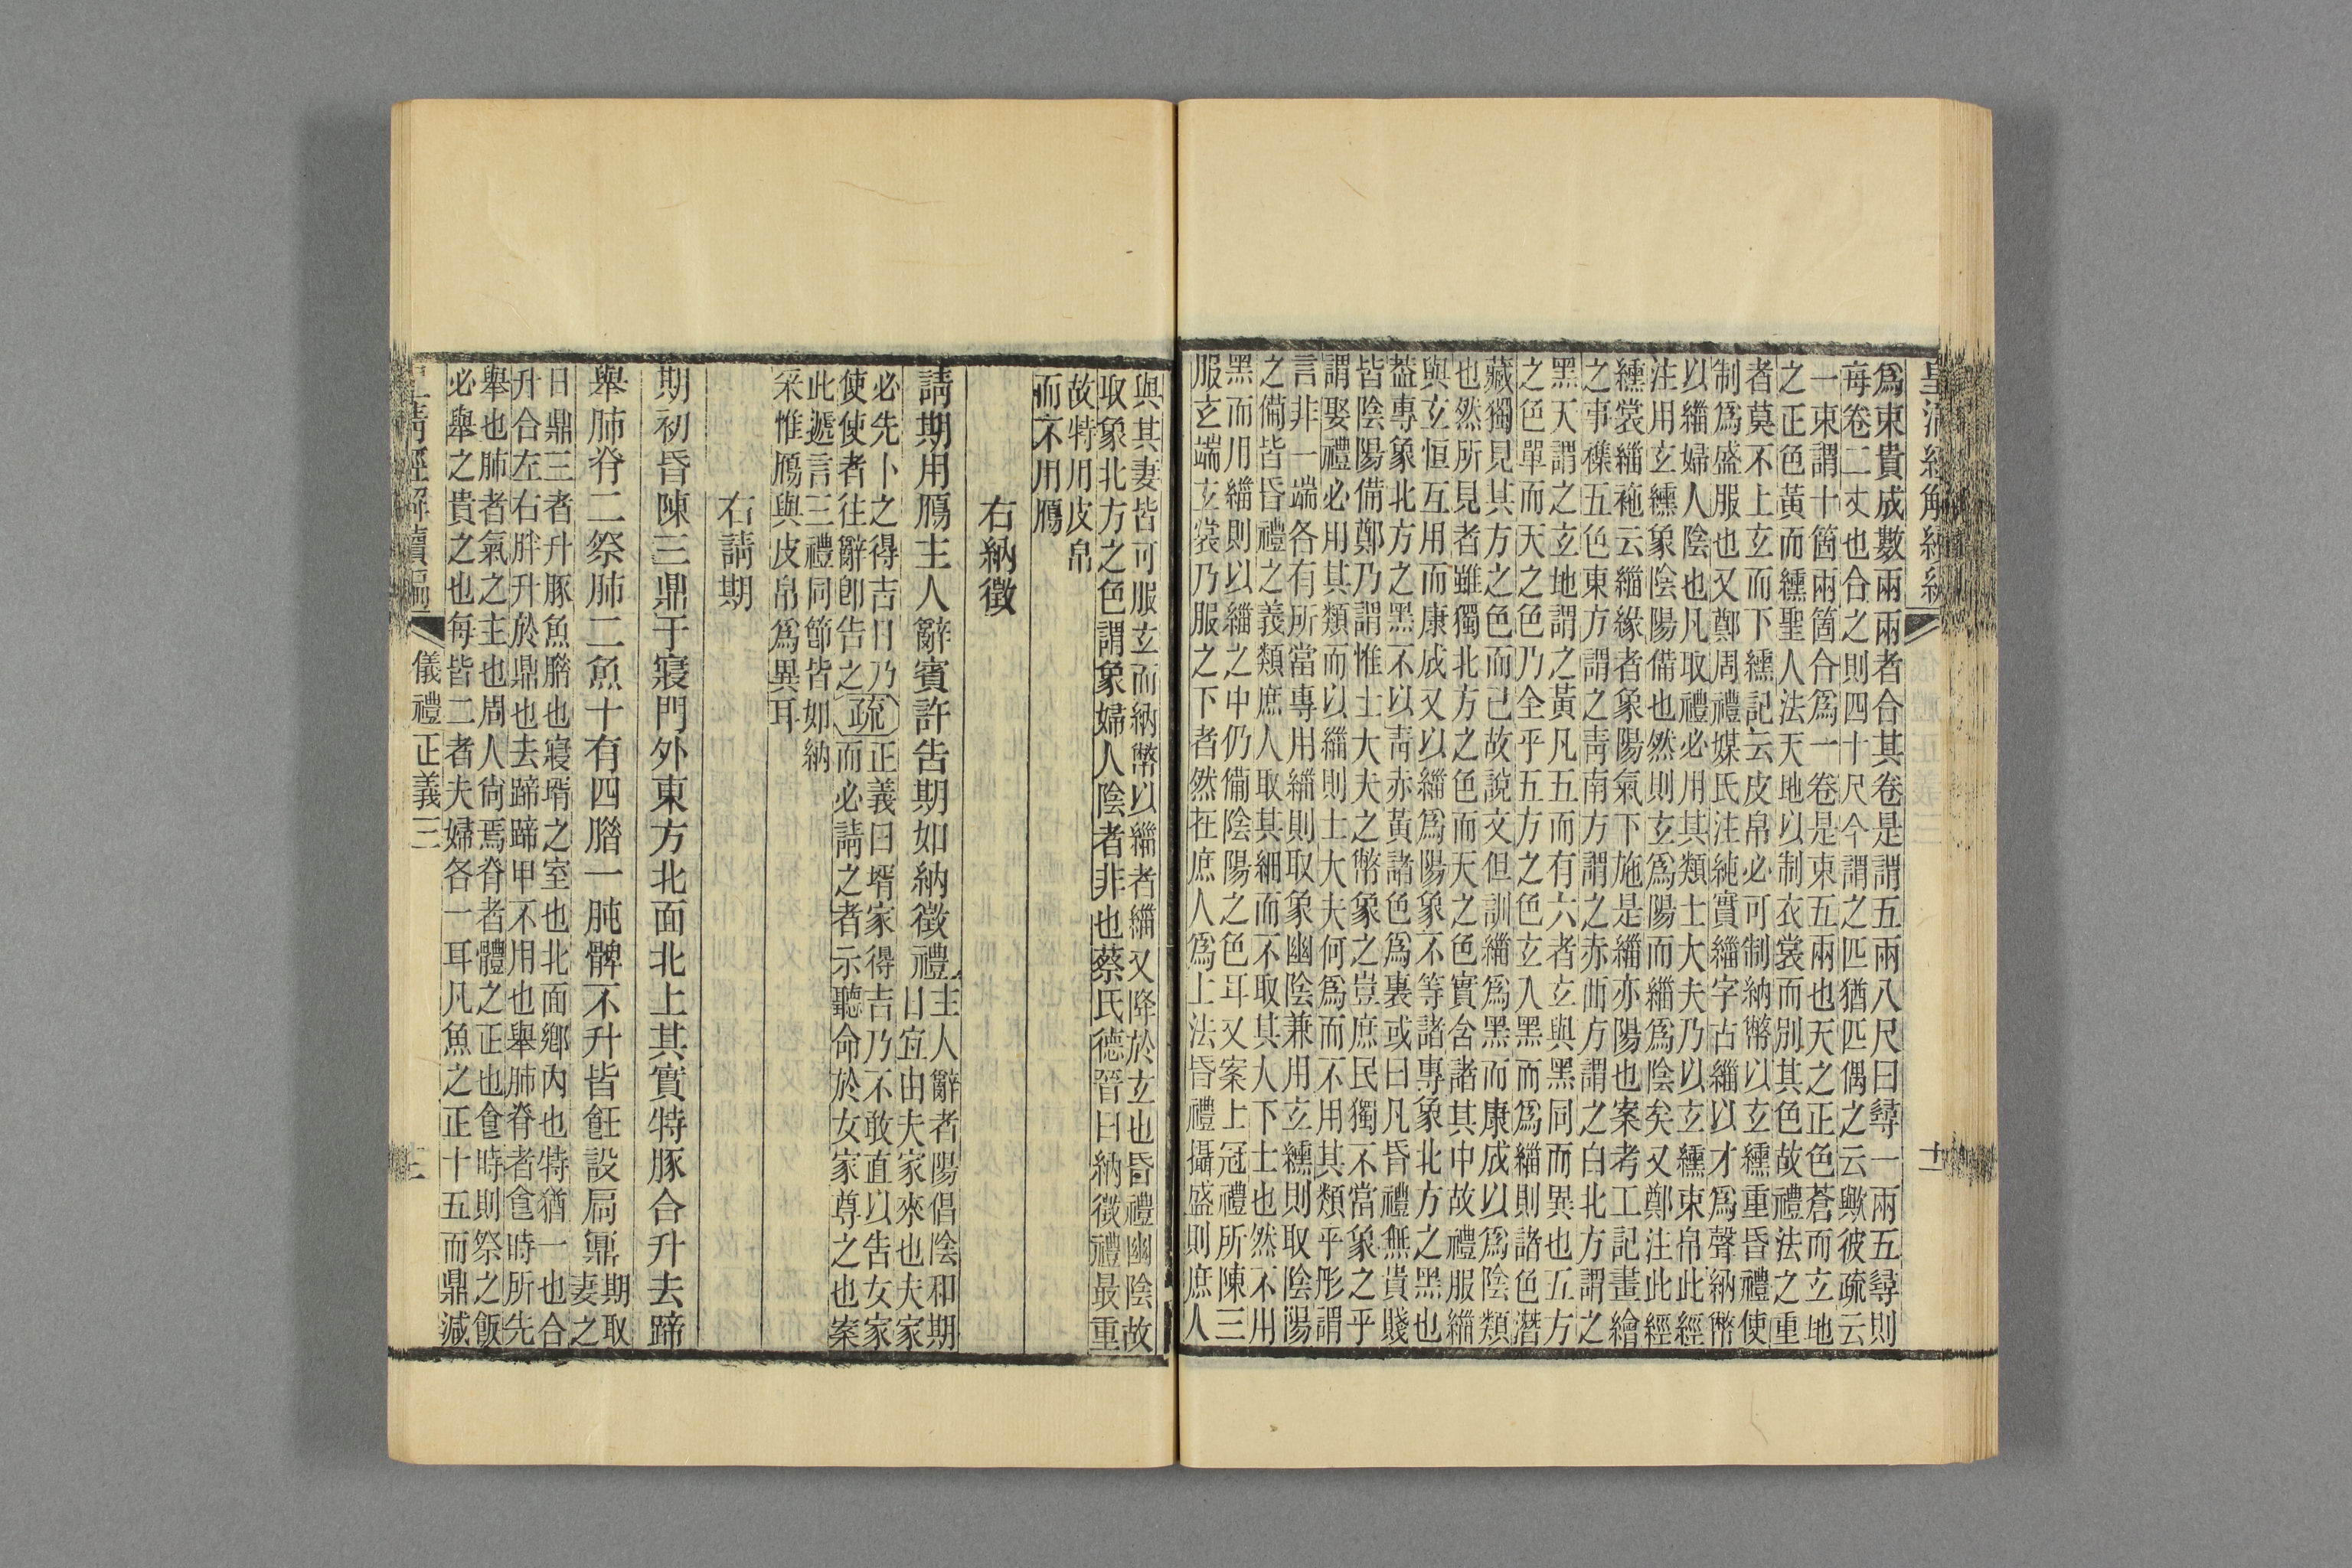 皇清經解續編
爲束貴成數兩兩者合其卷是謂五兩八尺曰尋一兩五尋則
每卷二丈也合之則四十尺今謂之匹猶匹偶之云歟彼疏云
一束謂十箇兩箇合爲一卷是束五兩也天之正色蒼而玄地
之正色黃而纁聖人法天地以制衣裳而別其色故禮法之重
者莫不上玄而下纁記云皮帛必可制納幣以玄纁重昏禮使
制爲盛服也又鄭周禮媒氏注純實緇字古緇以才爲聲納幣
以緇婦人陰也凡取禮必用其類士大夫乃以玄纁束帛此經
注用玄纁象陰陽備也然則玄爲陽而緇爲陰矣又鄭注此經
纁裳緇袘云緇緣者象陽氣下施是緇亦陽也案考工記畫繪
之事襍五色東方謂之靑南方謂之赤西方謂之白北方謂之
黑天謂之玄地謂之黃凡五而有六者玄與黑同而異也五方
之色單而天之色乃全乎五方之色玄入黑而爲緇則諧色潛
藏獨見其方之色而已故說文但訓緇爲黑而康成以爲陰類
也然所見者雖獨北方之色而天之色實含諸其中故禮服緇
與玄恒互用而康成又以緇爲陽象不等諸專象北方之黑也
葢專象北方之黑不以靑赤黃諸色爲裏或曰凡昏禮無貴賤
皆陰陽備鄭乃謂惟士大夫之幣象之豈庶民獨不當象之乎
謂娶禮必用其類而以緇則士大夫何爲而不用其類乎彤謂
言非一端各有所當專用緇則取象幽陰兼用玄纁則取陰陽
之備皆昏禮之義類庶人取其細而不取其人下士也然不用
黑而用緇則以緇之中仍備陰陽之色耳又案上冠禮所陳三
服玄端玄裳乃服之下者然在庶人爲上法昏禮攝盛則庶人
與其妻皆可服玄而納幣以緇者緇又降於玄也昏禮幽陰故
取象北方之色謂象婦人陰者非也蔡氏德晉曰納徵禮最重
故特用皮帛
而不用鴈
右納徵
請期用鴈主人辭賓許告期如納徵禮
主人辭者陽倡陰和期
日宜由夫家來也夫家
必先卜之得吉日乃
使使者往辭卽告之
疏
正義曰壻家得吉乃不敢直以告女家
而必請之者示聽命於女家尊之也案
此遞言三禮同節皆如納
采惟鴈與皮帛爲異耳
右請期
期初昏陳三鼎于寢門外東方北面北上其實特豚合升去蹄
舉肺脊二祭肺二魚十有四腊一肫髀不升皆飪設扃鼏
期取
妻之
日鼎三者升豚魚腊也寢壻之室也北面鄉內也特猶一也合
升合左右胖升於鼎也去蹄蹄甲不用也舉肺脊者食時所先
舉也肺者氣之主也周人尙焉脊者體之正也食時則祭之飯
必舉之貴之也每皆二者夫婦各一耳凡魚之正十五而鼎減
皇淸經解續編
儀禮正義三